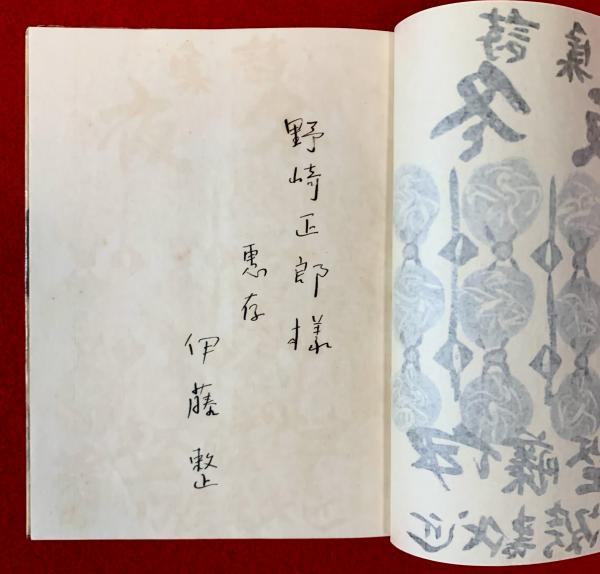 野崎正郎様
惠存
伊藤整
詩集
冬
伊藤整